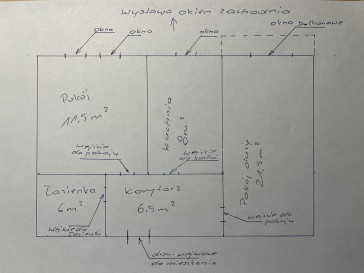 Wystawa okien zachodnia
okno
okno
okno
okno balkonowe
Pokój
11,5 m²
Kuchnia
8 m²
Pokój duży
21,5 m²
wejście
do pokoju
wejście
do kuchni
Łazienka
6 m²
Korytarz
6,5 m²
wejście do
łazienki
wejście do
pokoju
drzwi wejściowe
do mieszkania